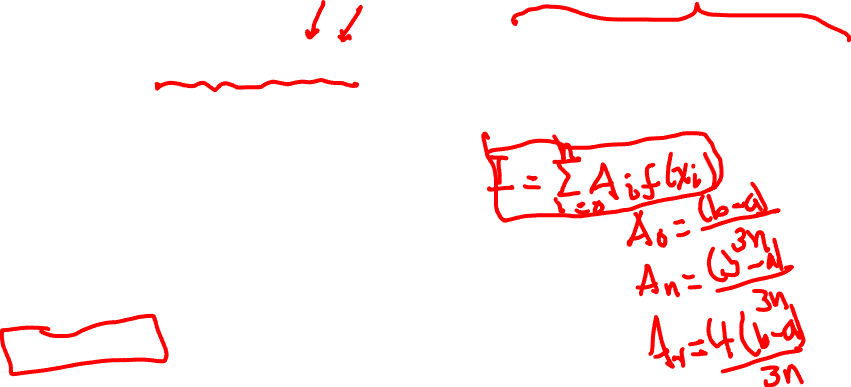 I = \sum_{i=0}^{n} A_i f(x_i)
A_0 = \frac{(b-a)}{3n}
A_n = \frac{(b-a)}{3n}
A_r = \frac{4(b-a)}{3n}